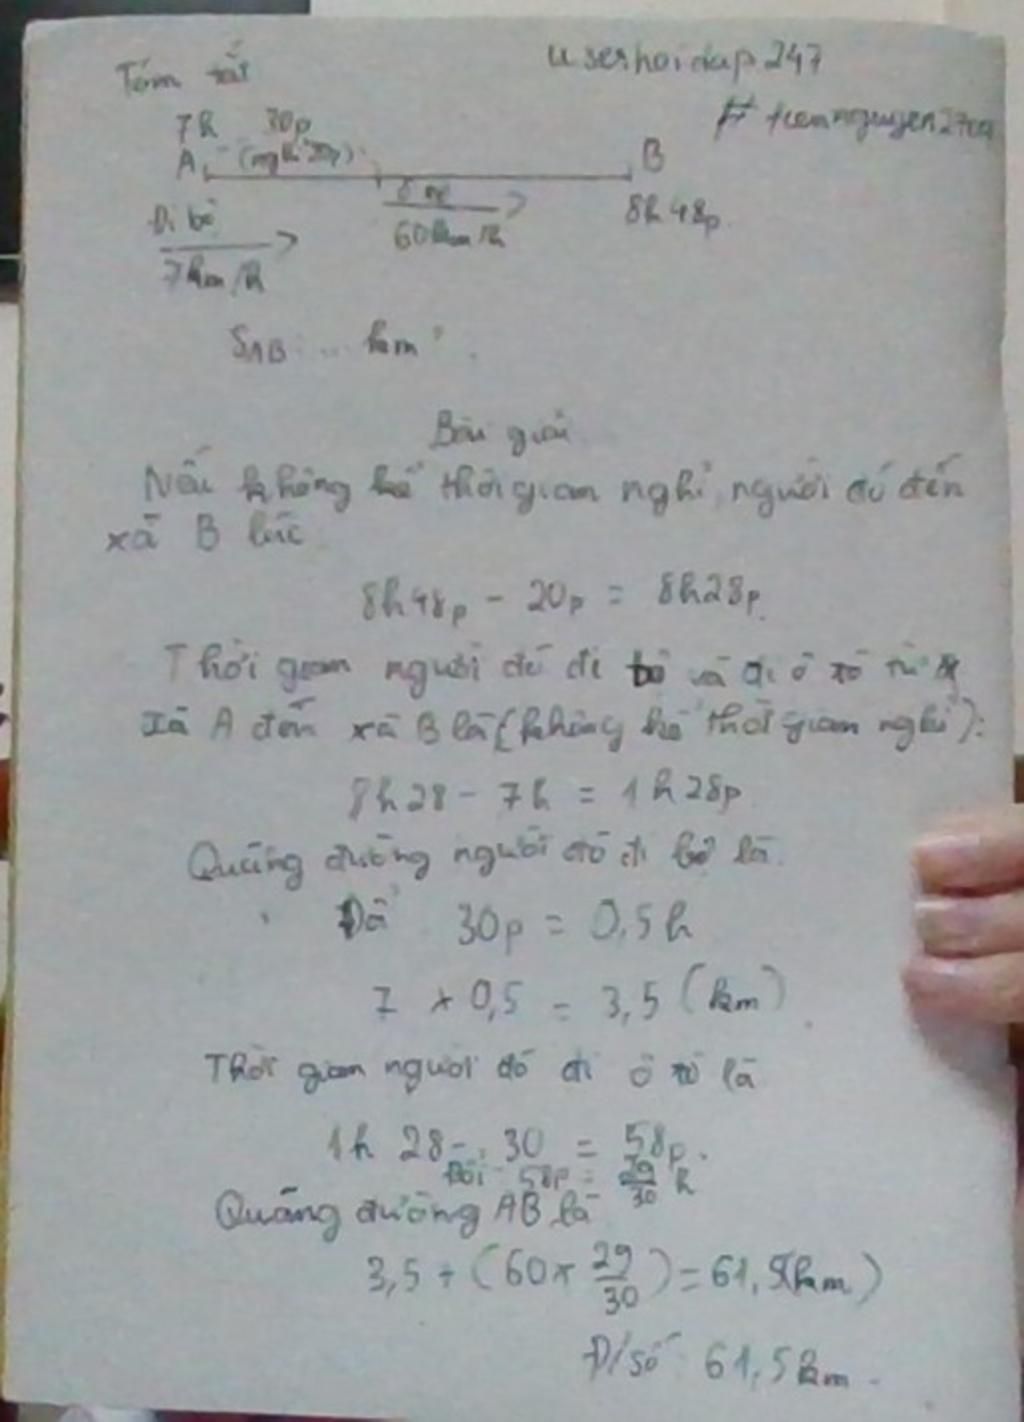 Tóm tắt
userhoidap247
# tiennguyen2709
7h 30p
A (nghỉ 20p) B
Ô tô
Đi bộ 60km/h 8h48p
7km/h
SAB ... km?
Bài giải
Nếu không kể thời gian nghỉ, người đó đến
xã B lúc
8h48p - 20p = 8h28p
Thời gian người đó đi bộ và đi ô tô từ
xã A đến xã B là (không kể thời gian nghỉ):
8h28 - 7h = 1h28p
Quãng đường người đó đi bộ là
30p = 0,5h
7 x 0,5 = 3,5 (km)
Thời gian người đó đi ô tô là
1h 28 - 30 = 58p
Đổi 58p = 29/30 h
Quãng đường AB là
3,5 + (60 x 29/30) = 61,5(km)
Đ/số: 61,5km